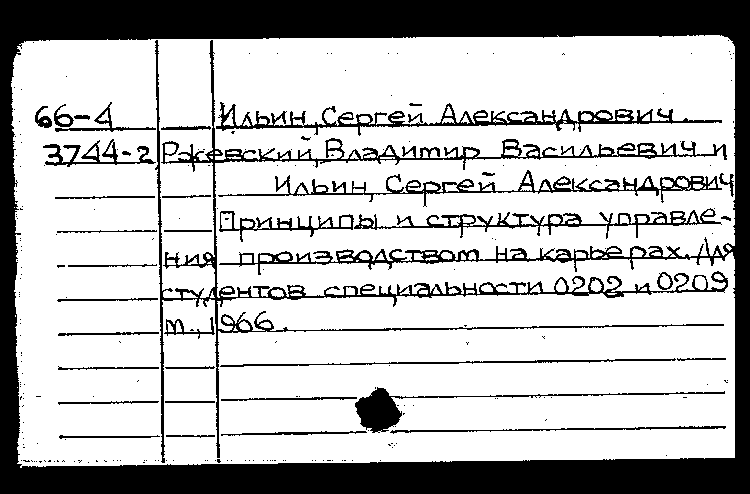 66-4 Ильин, Сергей Александрович.
3744-2 Ржевский, Владимир Васильевич и
Ильин, Сергей Александрович
Принципы и структура управле-
ния производством на карьерах. Для
студентов специальности 0202 и 0209
т., 1966.